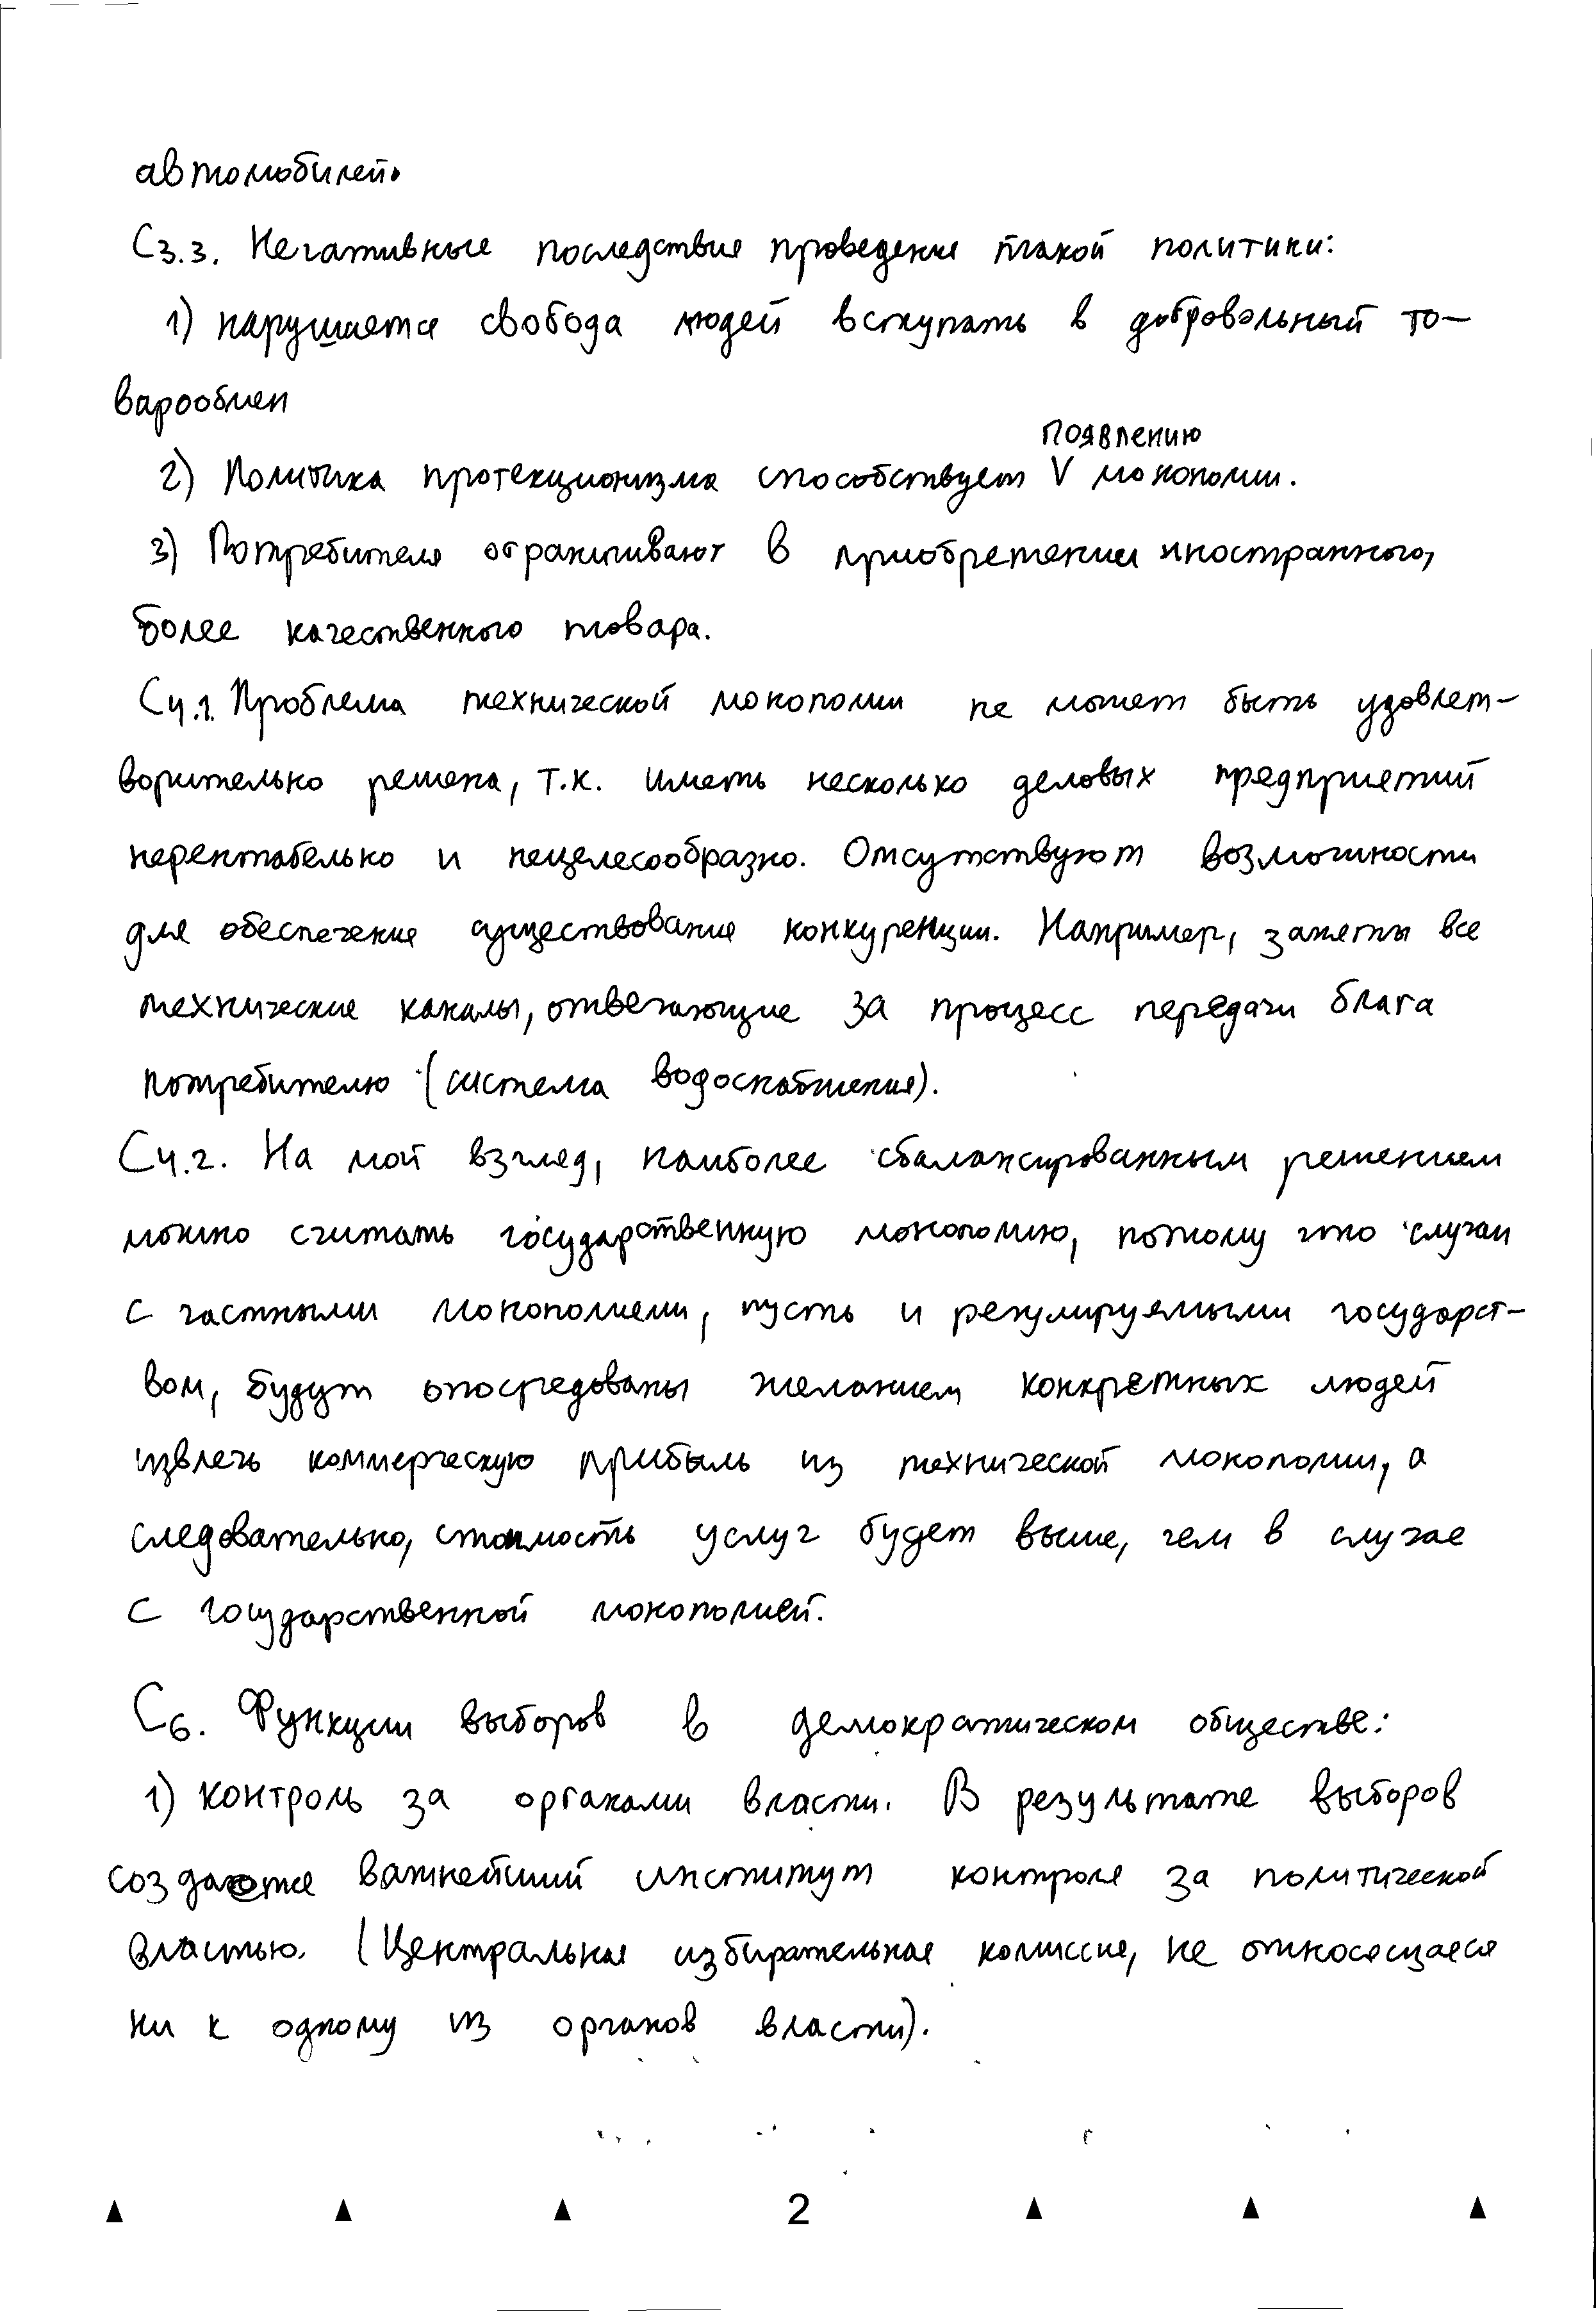 автомобилей.
С3.3. Негативные последствия проведения такой политики:
1) нарушается свобода людей вступать в добровольный то-
варообмен
появлению
2) Политика протекционизма способствует V монополии.
3) Потребителя ограничивают в приобретении иностранного,
более качественного товара.
С4.1. Проблема технической монополии не может быть удовлет-
ворительно решена, т.к. иметь несколько деловых предприятий
нерентабельно и нецелесообразно. Отсутствуют возможности
для обеспечения существования конкуренции. Например, заняты все
технические каналы, отвечающие за процесс передачи блага
потребителю (система водоснабжения).
С4.2. На мой взгляд, наиболее сбалансированным решением
можно считать государственную монополию, потому что случаи
с частными монополиями, пусть и регулируемыми государст-
вом, будут опосредованы желанием конкретных людей
извлечь коммерческую прибыль из технической монополии, а
следовательно, стоимость услуг будет выше, чем в случае
с государственной монополией.
С6. Функции выборов в демократическом обществе:
1) контроль за органами власти. В результате выборов
создается важнейший институт контроля за политической
властью. (Центральная избирательная комиссия, не относящаяся
ни к одному из органов власти).
2